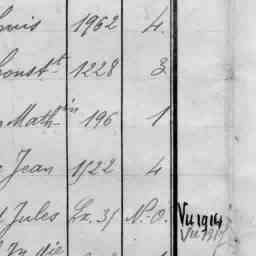 Louis 1962 4.
Const.t 1228 3.
Math.in 196 1
Jean 1522 4
Jules Lx. 31 N.-O. Vu 1914
Vu 1917
In die